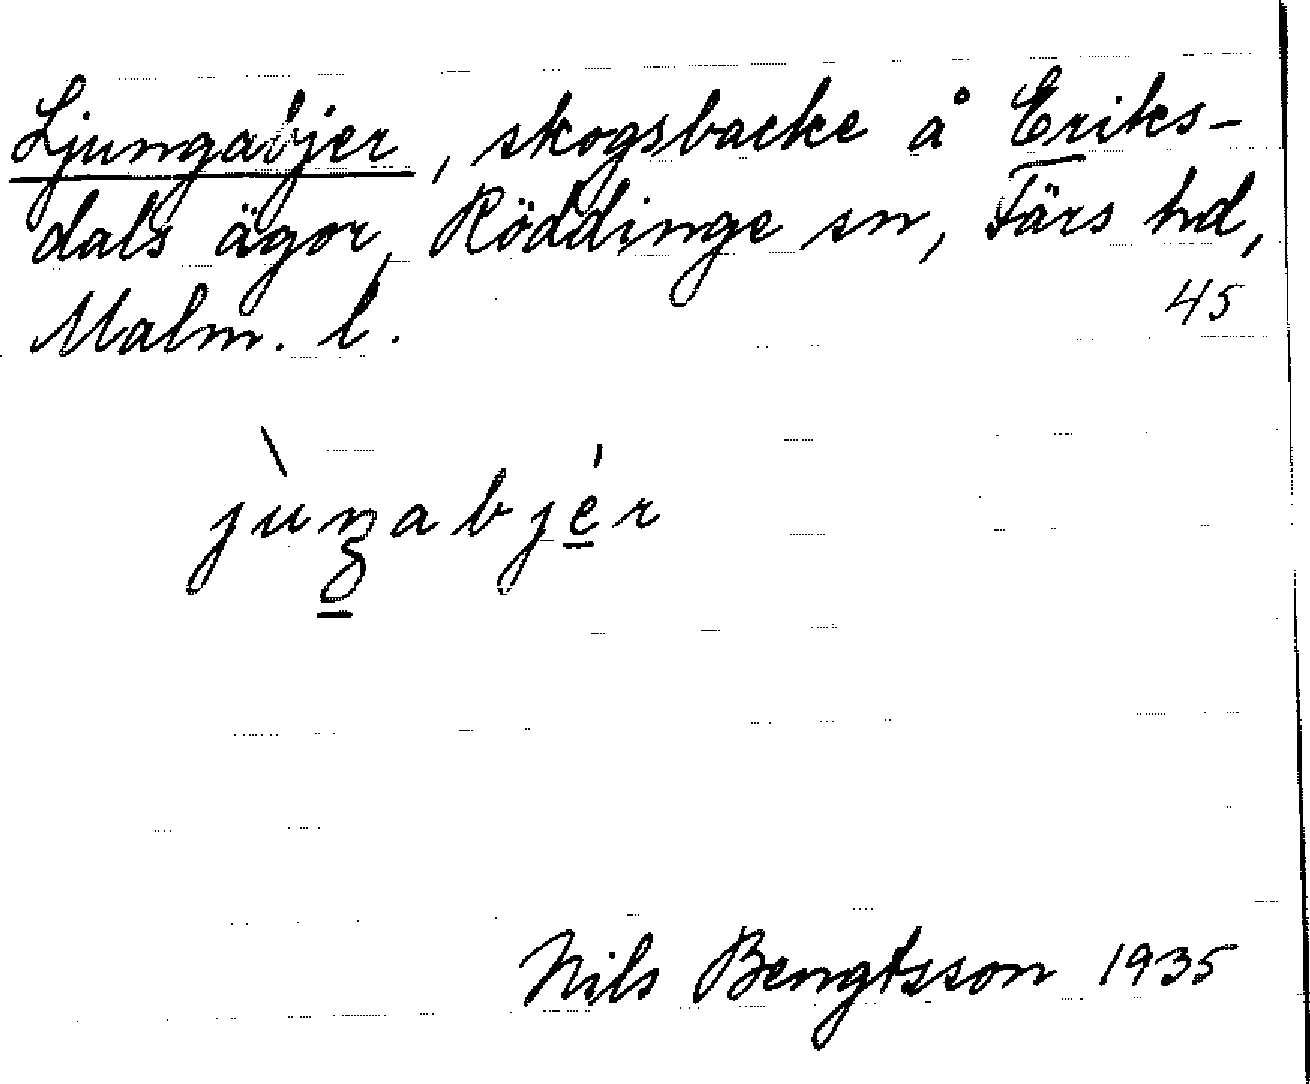 Ljungabjer, skogsbacke å Eriks-
dals ägor, Röddinge sn, Färs hd,
Malm. l.
45
jùŋabjér
Nils Bengtsson 1935